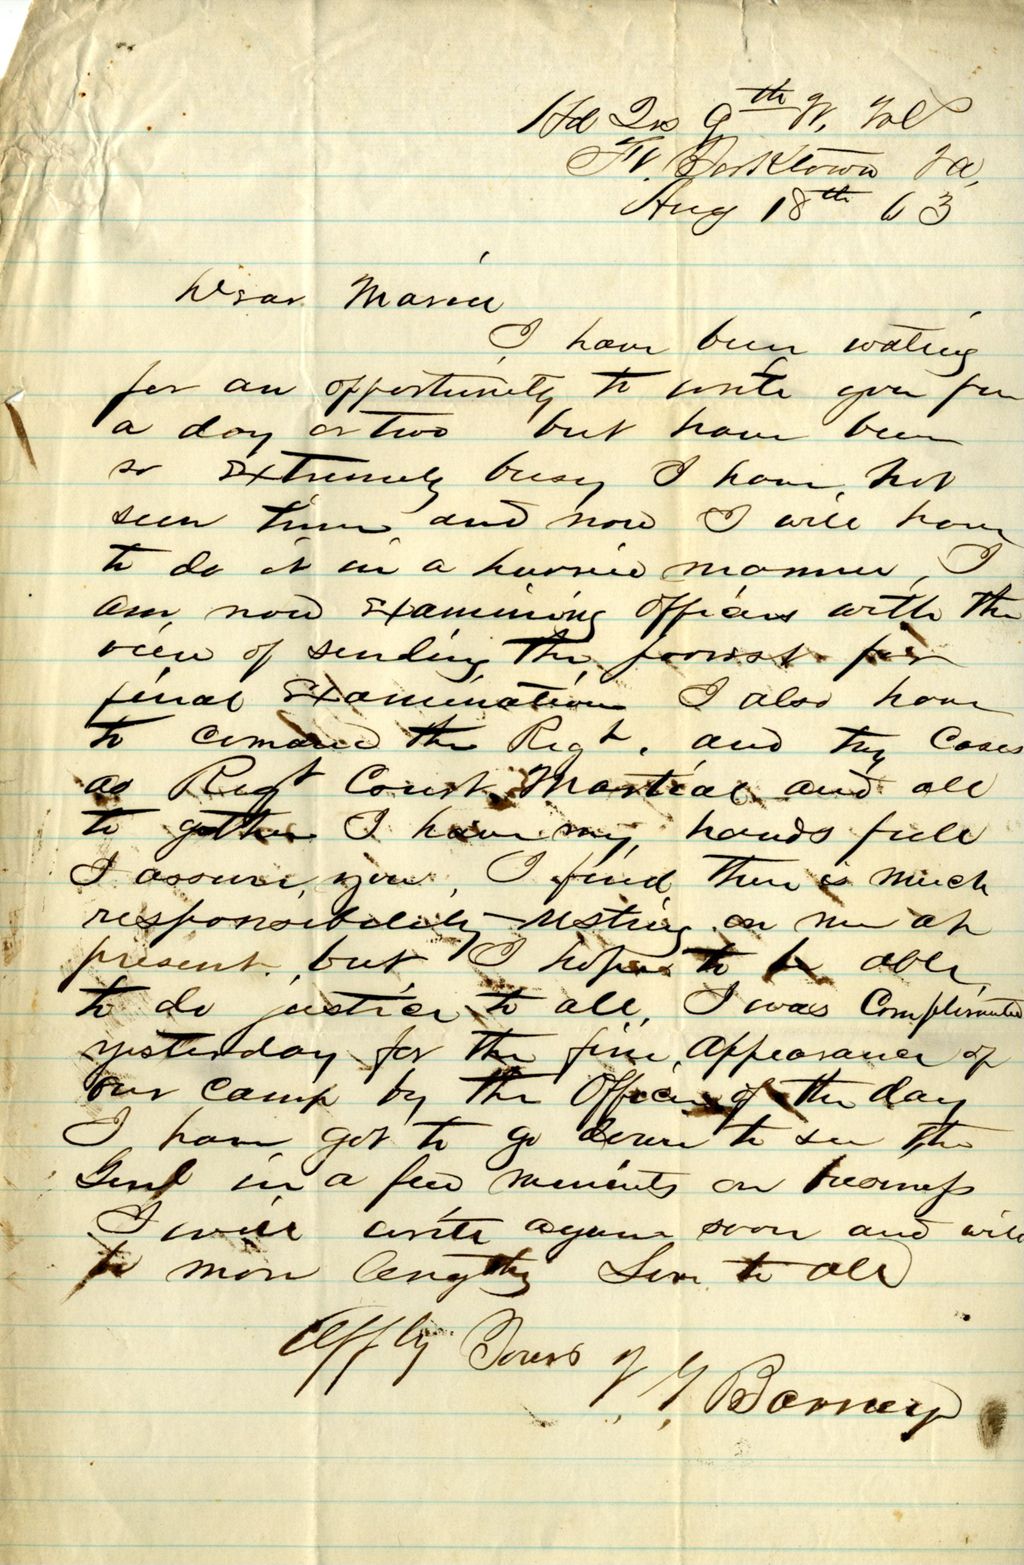 Hd Qrs 9th Vt. Vol
Ft. Yorktown Va.
Aug 18th 63
Dear Maria
I have been wating
for an opportunity to write you for
a day or two but have been
so extremely busy I have not
seen time and now I will have
to do it in a hurried manner, I
am now examining officers with the
view of sending the poorest for
final examination I also have
to comand the Regt. and try cases
as Regt Court Martial and all
to gether I have my hands full
I assure you, I find there is much
responsibility resting on me at
present, but I hope to be able
to do justice to all, I was complimented
yesterday for the fine appearance of
our camp by the officer of the day
I have got to go down to see the
Genl in a few minuts on business
I will write again soon and will
be more lengthy Love to all
Affly Yours V. G. Barney